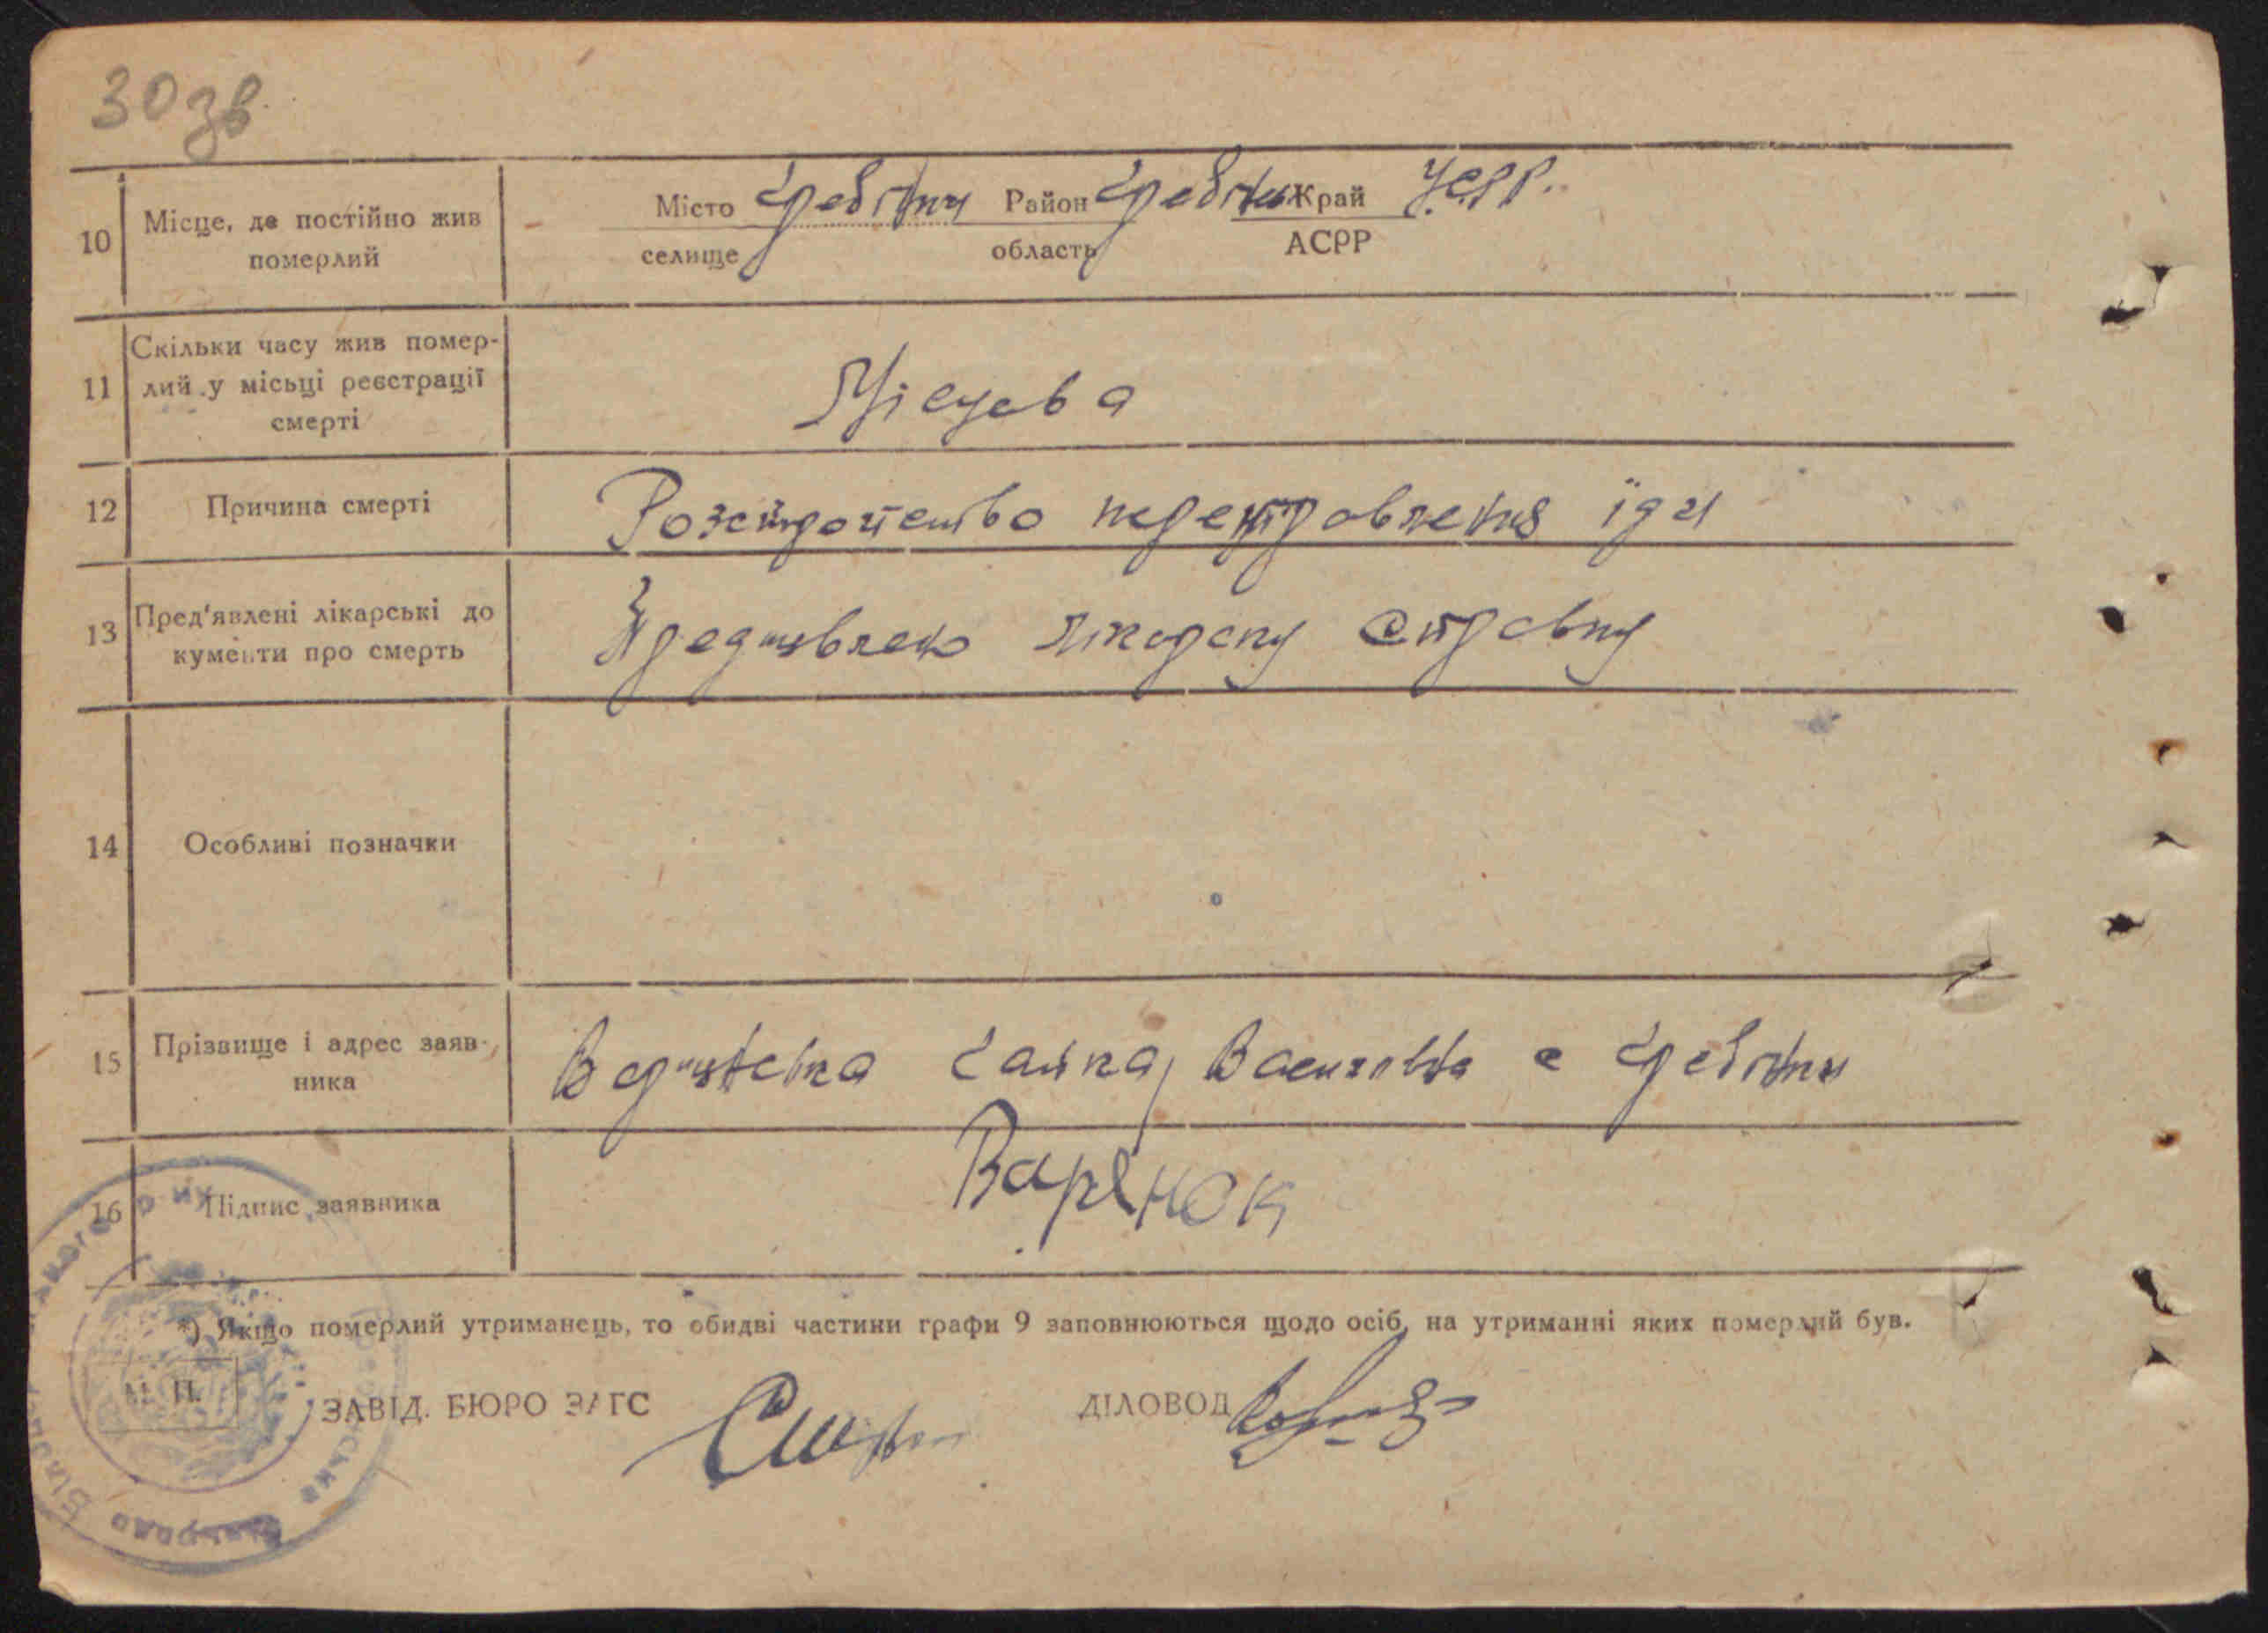 30 зв
10 Місце, де постійно жив померлий
Місто Гребінки Район Гребінк Край УСРР.
селище область АСРР
11 Скільки часу жив помер-
лий у місьці реєстрації
смерті
Місцева
12 Причина смерті
Розстройство перетровлення їди
13 Пред'явлені лікарські до
кументи про смерть
Предявлено лікарску справку
14 Особливі позначки
15 Прізвище і адрес заяв-
ника
Василівна с Гребінки
16 Підпис заявника
Варенок
*) Якщо померлий утриманець, то обидві частини графи 9 заповнюються щодо осіб, на утриманні яких померлий був.
М. П.
ЗАВІД. БЮРО ЗАГС ДІЛОВОД